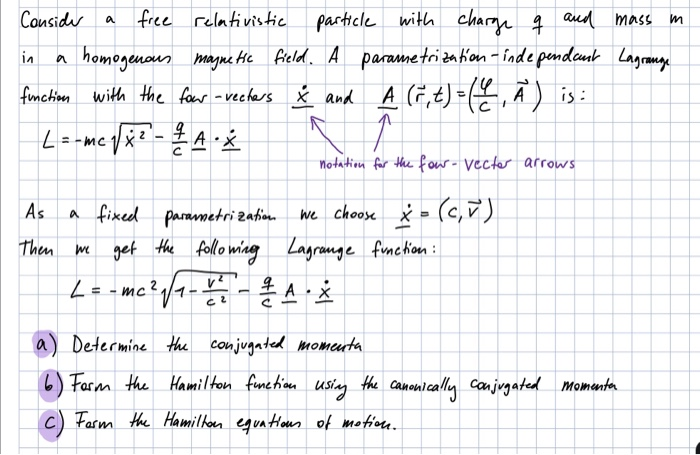 Consider a free relativistic particle with charge q and mass m
in a homogenous magnetic field. A parametrization-independant Lagrange
function with the four-vectors ẋ and A (r⃗,t) = (φ/c, A⃗) is:
L = -mc √ẋ² - q/c A · ẋ
notation for the four-vector arrows
As a fixed parametrization we choose ẋ = (c, v⃗)
Then we get the following Lagrange function:
L = -mc² √1 - v²/c² - q/c A · ẋ
a) Determine the conjugated momenta
b) Form the Hamilton function using the canonically conjugated momenta
c) Form the Hamilton equations of motion.